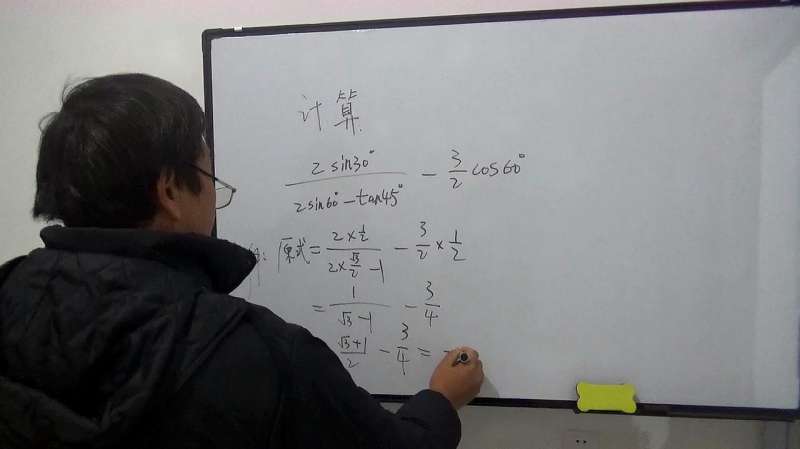 计算
2 sin30° / (2 sin60° - tan45°) - 3/2 cos60°
解: 原式 = (2 × 1/2) / (2 × √3/2 - 1) - 3/2 × 1/2
= 1 / (√3 - 1) - 3/4
(√3 + 1) / 2 - 3/4 =